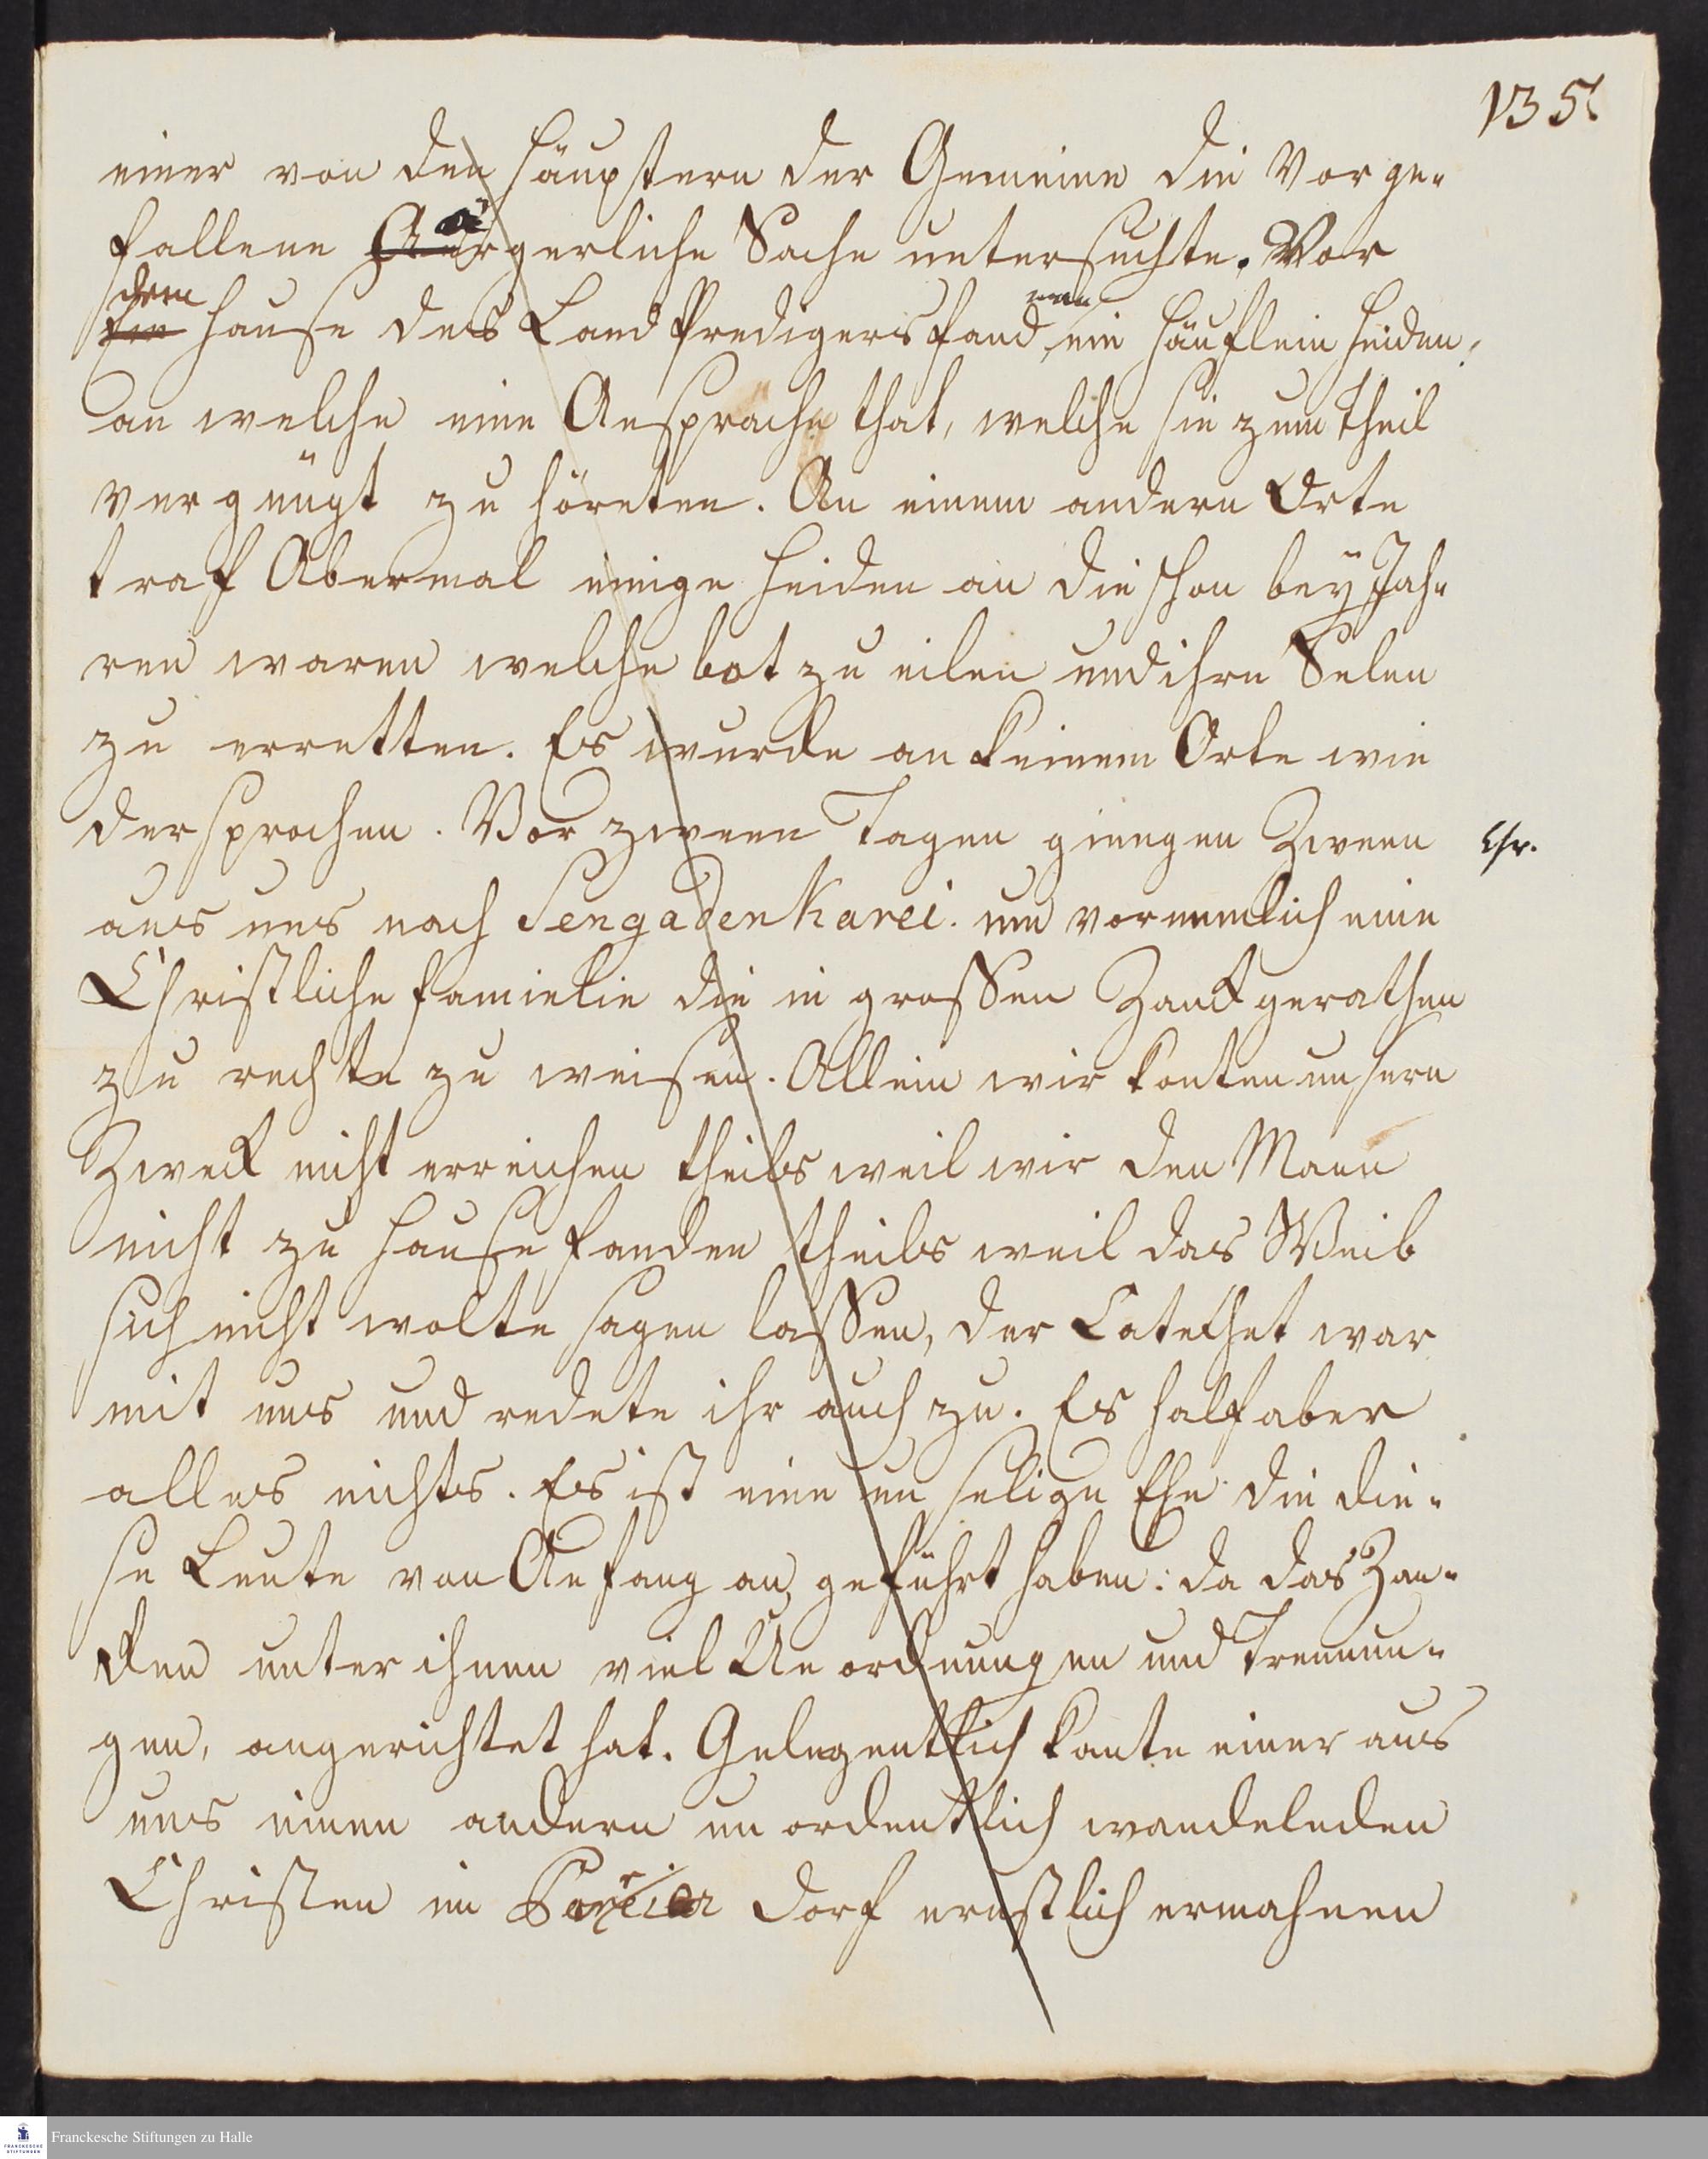 135
einer von den Häuptern der Gemeine die Vorge-
fallene ärgerliche Sache untersuchte. Vor
dem Hause des Land Predigers fand man ein Häuflein Heiden,
an welche eine Ansprache that, welche sie zum Theil
vergnügt zu höreten. An einem andern Orte
traf Abermal einige Heiden an die schon bey Jah-
ren waren welche bat zu eilen und ihre Selen
zu erretten. Es wurde an keinem Orte wie
dersprochen. Vor zween Tagen giengen Zween
Chr.
aus uns nach Sengadenkarei. um vornemlich eine
Christliche familie die in grossen Zanck gerathen
zu rechte zu weisen. Allein wir konten unsern
Zweck nicht erreichen theils weil wir den Mann
nicht zu Hause fanden theils weil das Weib
sich nicht wolte sagen lassen, der Catechet war
mit uns und redete ihr auch zu. Es half aber
alles nichts. Es ist eine un selige Ehe die die-
se Leute von Anfang an, geführt haben: da das Zan-
cken unter ihnen viel Un ordnungen und Trennun-
gen, angerichtet hat. Gelegentlich konte einer aus
uns einen andern un ordentlich wandelnden
Christen im Poreiar Dorf ernstlich ermahnen
Franckesche Stiftungen zu Halle